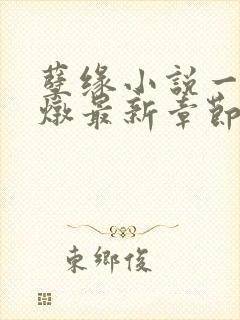 孽缘小説一
燉最新章節
東鄉俊